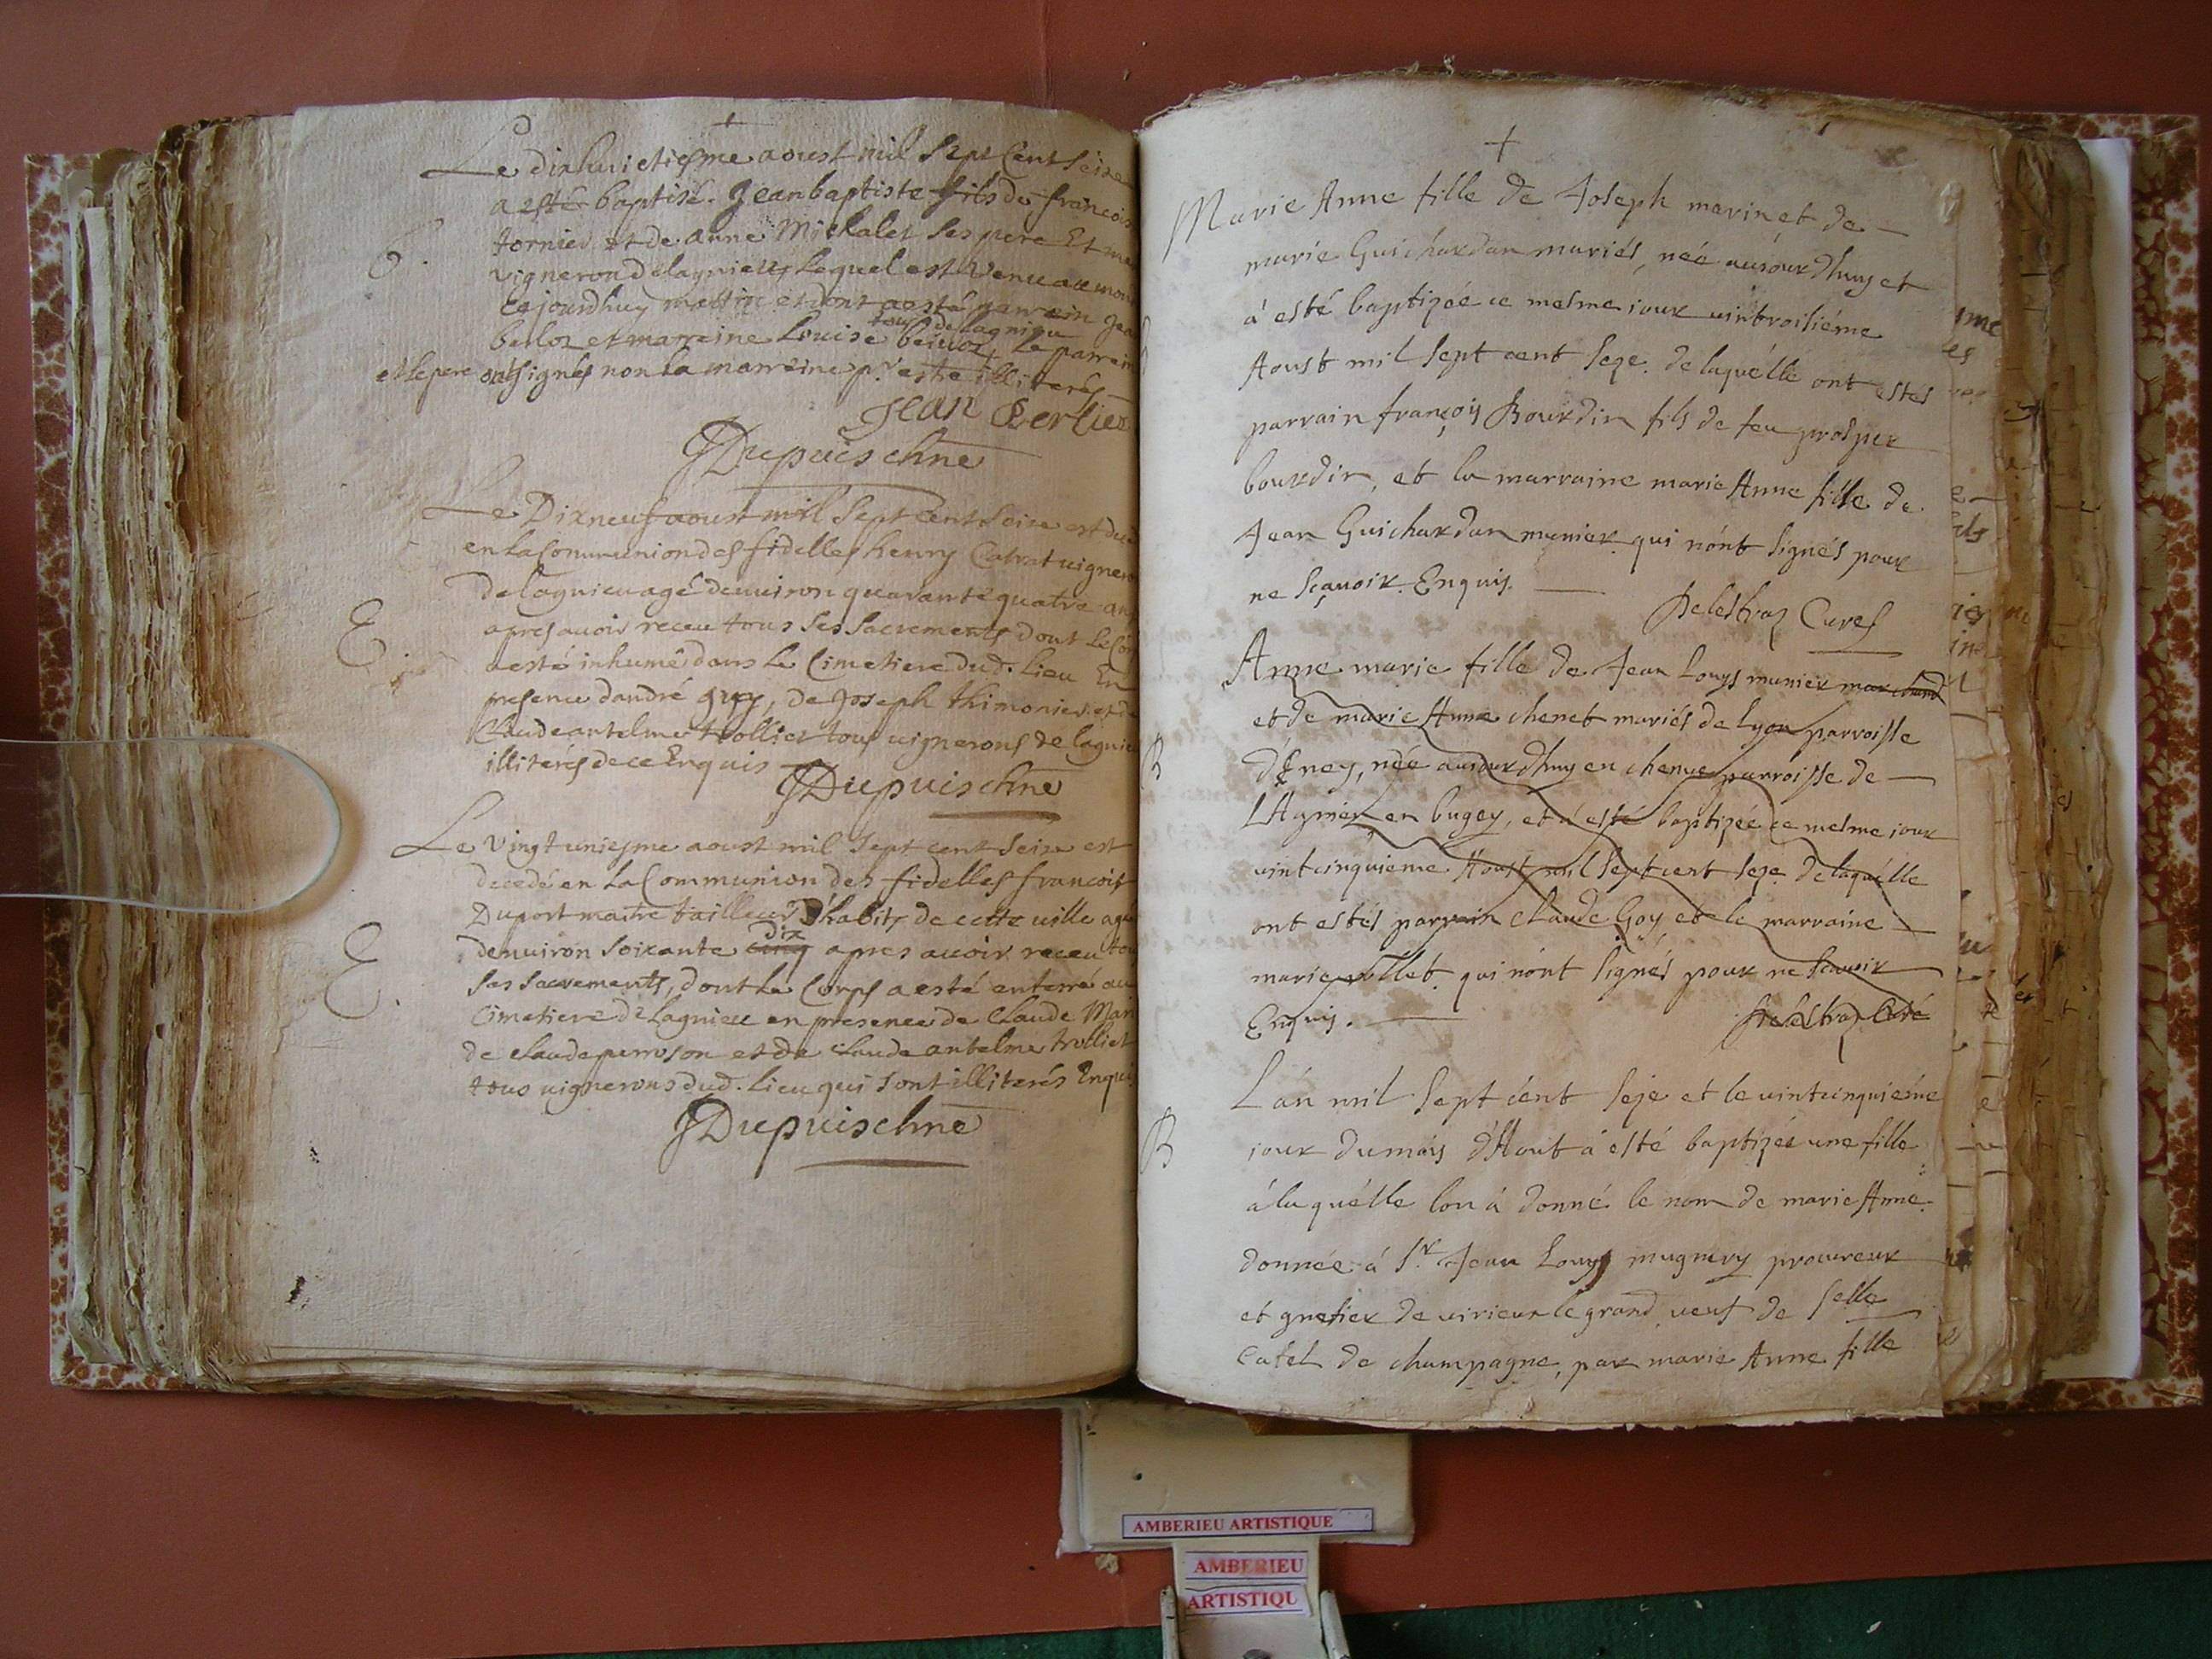 +
Le dixhuictiesme aoust mil sept Cent seize
a esté baptisé. Jeanbaptiste fils de francois
tornier et de anne Michalet ses pere Et
vigneron delagnieu Lequel est Venu au
Cejourdhuy mattin et dont a esté parrain
tous de Lagnieu
et marraine Louise Le parrain
et le pere ont signés non La marreine pr estre illiteres
Jean Berliez
JDupuis chne
B.
Le Dixneuf aoust mil sept Cent seize est
en La Communion des fidelles henry Calvat vigneron
de lagnieu agé denuiron quarante quatre ans
apres auoir receu tous ses sacrements dont Le
a esté inhumé dans Le Cimetiere dud. Lieu En
presence dandré guy, de Joseph thimonier et de
Claude antelme trolliet tous uignerons de lagnieu
illiterés de ce Enquis
JDupuis chne
E.
Le Vingt uniesme aoust mil sept cent seize est
decedé en La Communion des fidelles francois
Duport maitre tailleur D'habits de cette uille agé
dix
denuiron soixante cinq apres auoir receu
ses sacrements, dont Le Corps a esté enterré au
Cimetiere de Lagnieu en presence de Claude
de Claude perroson et de Claude antelme trolliet
tous uignerons dud. Lieu qui sont illiterés Enquis
JDupuis chne
E.
+
Marie Anne fille de Joseph marin et de
marie Guichardan mariés, née aujourdhuy et
à esté baptizée ce mesme iour vintroisiéme
Aoust mil sept cent seze. de laquélle ont estés
parrain françois Bourdin fils de feu prosper
bourdin, et la marraine marie Anne fille de
Jean Guichardan munier qui nónt signés pour
ne sçavoir. Enquis.
Delestraz Curé
Anne marie fille de Jean Louys munier marchand
et de marie Anne chenet mariés de Lyon parroisse
d'Eney, née aujourdhuy en chenue parroisse de
LAgnieu en bugey, et à esté baptizée ce mesme iour
vintcinquiéme Aoust mil sept cent seze de laquélle
ont estés parrain claude Goy et le marraine
marie qui nónt signés pour ne scavoir
Enquis.
Delestraz Curé
B
Lán mil sept cént seze et le vintcinquiéme
iour du mois d'Aout á esté baptizée une fille
á laquélle lon á donné le nom de marie Anne.
donnée á Sr. Jean Louys mugniry procureur
et grefier de virieux le grand veuf de selle
Catel de champagne, par marie Anne fille
B
AMBERIEU ARTISTIQUE
AMBERIEU
ARTISTIQU